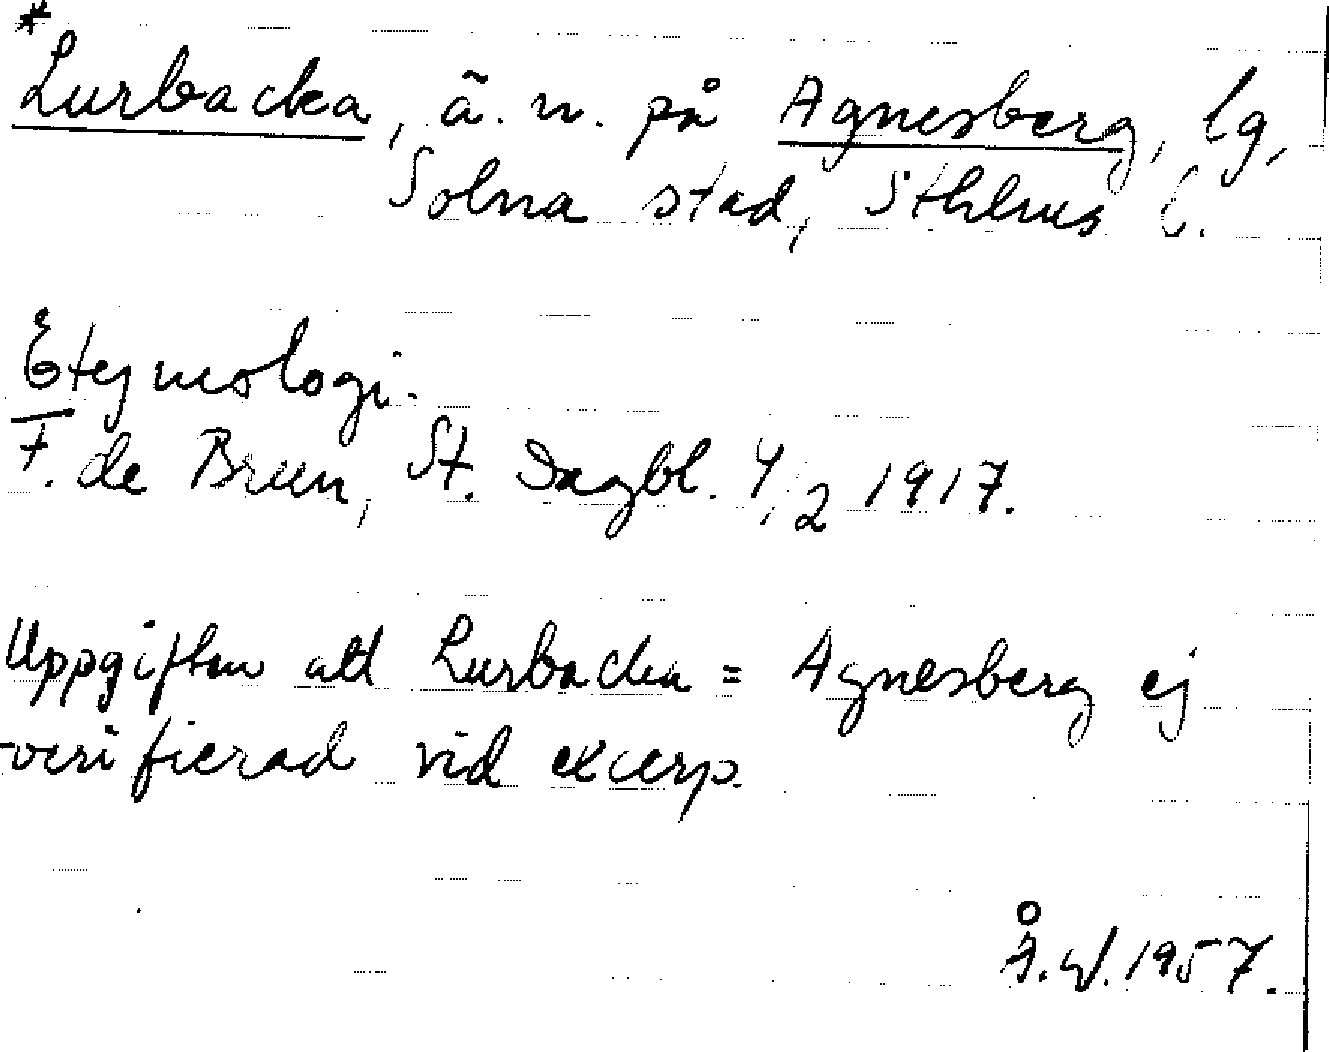 *Lurbacka, ä. n. på Agnesberg, lg,
Solna stad, Sthlms l.
Etymologi.
F. de Brun, St. Dagbl. 4/2 1917.
Uppgiften att Lurbacka = Agnesberg ej
verifierad vid excerp.
Å. W. 1957.